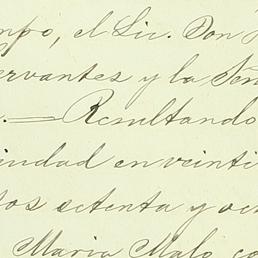 mpo, el Lic. Don
ervantes y la Señ
.— Resultando
iudad en veinti
tos setenta y och
Maria Malo, co